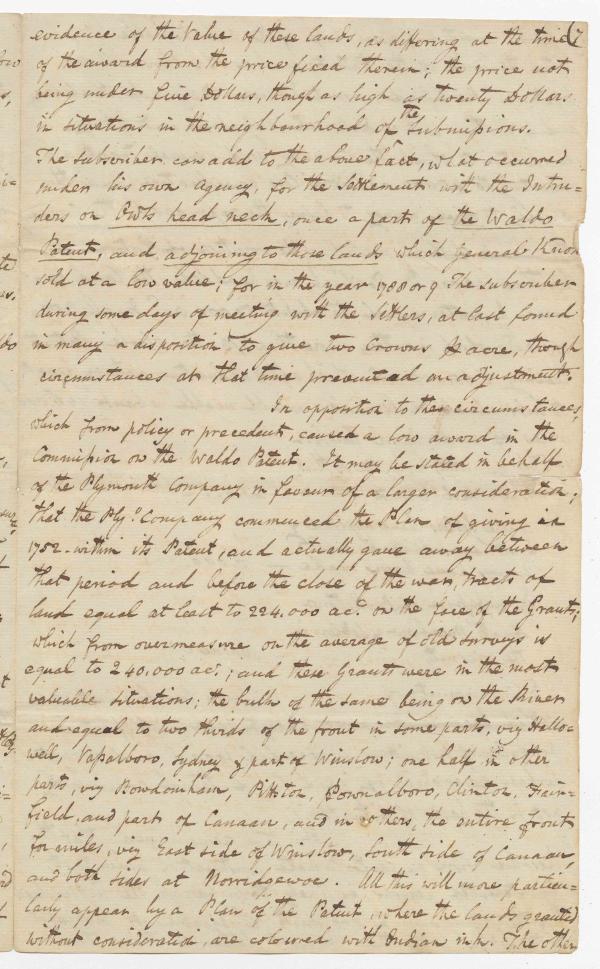 evidence of the Value of these lands, as differing at the time (7
of the award from the price fixed therein; the price not
being under five Dollars, though as high as twenty Dollars
in situations in the neighbourhood of the Submissions.
The subscriber can add to the above fact, what occurred
under his own agency, for the Settlement with the Intru=
ders on Owls head neck, once a part of the Waldo
Patent, and adjoining to those lands which General Knox
sold at a low value; for in the year 1788 or 9 The subscriber
during some days of meeting with the Settlers, at last found
in many a disposition to give two Crowns ⅌ acre, though
circumstances at that time prevented an adjustment.
In opposition to these circumstances,
which from policy or precedent, caused a low award in the
Commission on the Waldo Patent. It may be stated in behalf
of the Plymouth Company in favour of a larger consideration;
that the Plyo. Company commenced the Plan of giving in
1752 - within its Patent, and actually gave away between
that period and before the close of the war, tracts of
land equal at least to 224.000 acs. on the face of the Grants;
which from overmeasure on the average of old surveys is
equal to 240.000 acs.; and these Grants were in the most
valuable situations; the bulk of the same being on the River
and equal to two thirds of the front in some parts, viz Hallo=
well, Vassalboro, Sydney & part of Winslow; one half in other
parts, viz Bowdoinham, Pittston, Pownalboro, Clinton, Fair=
field, and part of Canaan, and in others, the entire front
for miles, viz East side of Winslow, South side of Canaan,
and both sides at Norridgewoc. All this will more particu=
larly appear by a Plan of the Patent, where the lands granted
without consideration, are coloured with Indian ink. The other